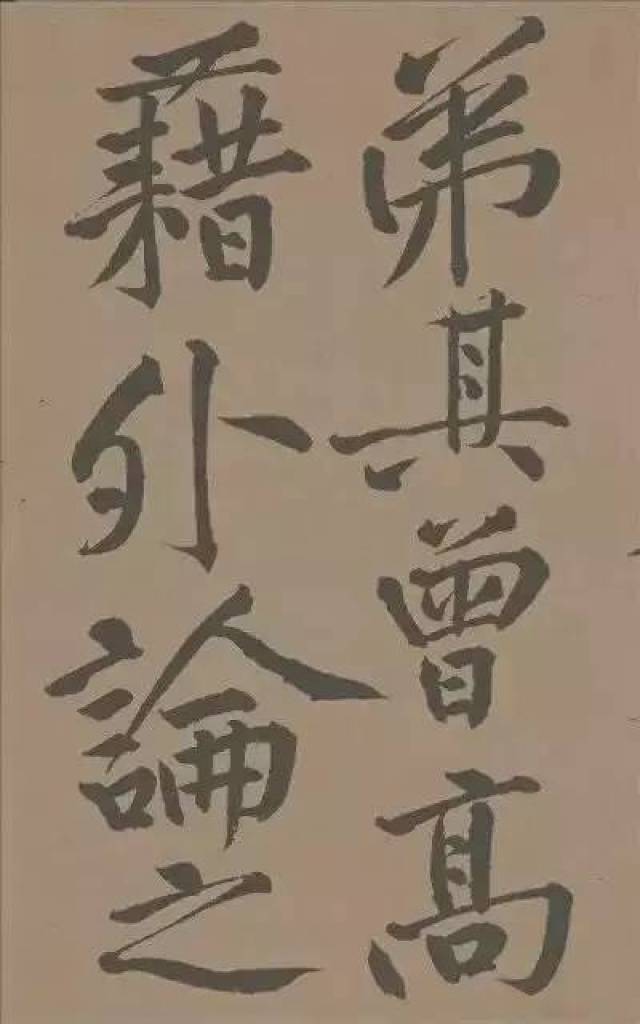 弟其曾高
藉外論之